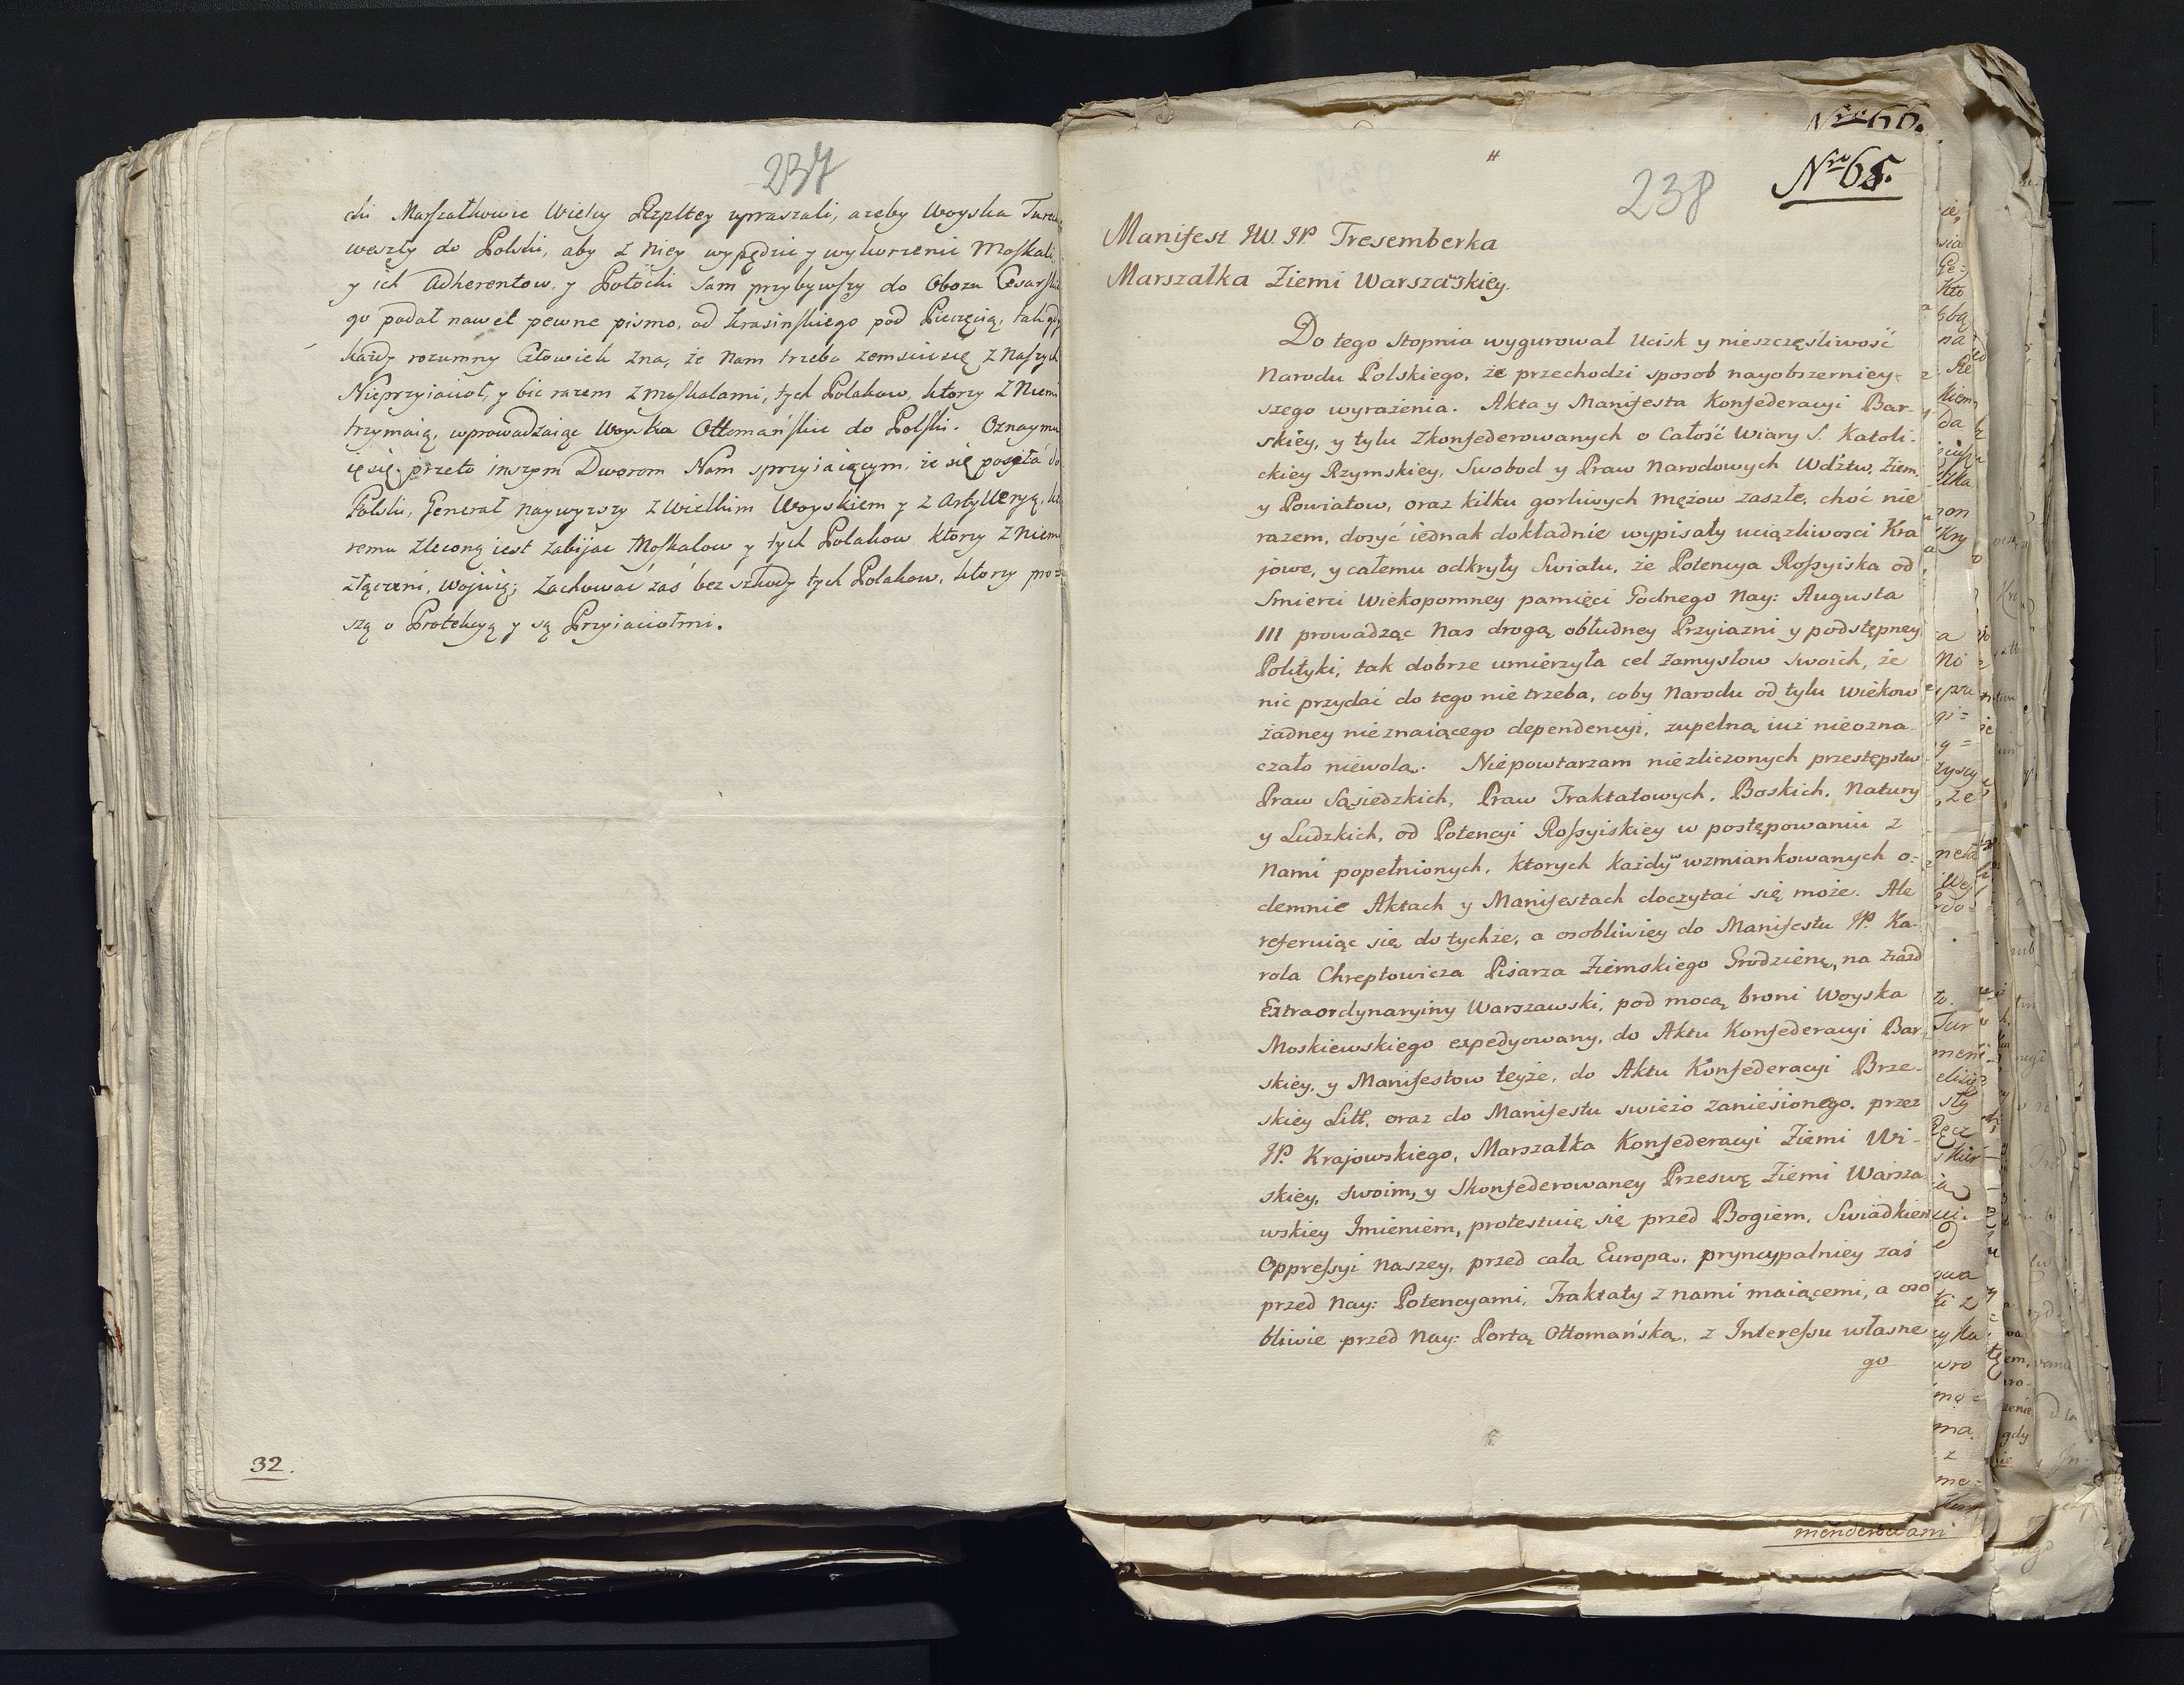 237
chi Marszałkowie Wielcy Rzpltey upraszali, ażeby Woyska
weszły do Polski, aby z niey wypędzić y wykorzenić Moskali
y ich Adherentow, y Potocki sam przybywszy do Obozu
go podał nawet pewne pismo, od Krasinskiego pod Pieczęcią,
każdy rozumny Człowiek zna, że Nam trzeba zemścić się z Naszych
Nieprzyiacioł, y bić razem z Moskalami, tych Polakow, ktorzy z Niemi
trzymaią, wprowadzaiąc Woyska Ottomańskie do Polski. Oznaymu
ię się przeto inszym Dworom Nam sprzyiaiącym, że się posyła do
Polski, Generał naywyższy z Wielkim Woyskiem y z Artylleryą,
remu zlecono iest zabijac Moskalow y tych Polakow ktorzy z Niemi
złączeni, wojuią; zachować zaś bez szkody tych Polakow, ktorzy pro=
szą o Protekcyą y są Przyiaciołmi.
32.
Nro 66.
Nro 65.
238
Manifest JW. JP. Tresemberka
Marszałka Ziemi Warszawskiey.
Do tego stopnia wygurował Ucisk y nieszczęśliwość
Narodu Polskiego, że przechodzi sposob nayobszerniey-
szego wyrażenia. Akta y Manifesta Konfederacyi Bar-
skiey, y tylu Zkonfederowanych o Całość Wiary S. Katoli-
ckiey Rzymskiey, Swobod y Praw Narodowych Wdztw, Ziem,
y Powiatow, oraz kilku gorliwych mężow zaszłe, choć nie
razem, dosyć iednak dokładnie wypisały uciązliwosci Kra
jowe, y całemu odkryły Swiatu, że Potencya Rossyiska od
Smierci Wiekopomney pamięci Godnego Nay: Augusta
III prowadząc Nas drogą obłudney Przyiazni y podstępney
Polityki, tak dobrze umierzyła cel zamysłow swoich, że
nic przydać do tego nie trzeba, coby Narodu od tylu wiekow
żadney nieznaiącego dependencyi, zupełną iuż nieozna-
czało niewolą. Niepowtarzam niezliczonych przestępstw
Praw Sąsiedzkich, Praw Traktatowych, Boskich, Natury
y Ludzkich, od Potencyi Rossyiskiey w postępowaniu z
Nami popełnionych, ktorych każdy w wzmiankowanych o=
demnie Aktach y Manifestach doczytać się może. Ale
referuiąc się do tychże, a osobliwiey do Manifestu JP. Ka-
rola Chreptowicza Pisarza Ziemskiego Grodzienę, na Ziazd
Extraordynaryiny Warszawski, pod mocą broni Woyska
Moskiewskiego expedyowany, do Aktu Konfederacyi Bar-
skiey, y Manifestow teyże, do Aktu Konfederacyi Brze-
skiey Litt, oraz do Manifestu swieżo zaniesionego, przez
JP. Krajowskiego, Marszałka Konfederacyi Ziemi Wi-
skiey, swoim, y Skonfederowaney Przeswę Ziemi Warsza
wskiey Imieniem, protestuię się przed Bogiem, Swiadkiem
Oppressyi Naszey, przed całą Europą, pryncypalniey zaś
przed Nay: Potencyami, Traktaty z nami maiącemi, a oso
bliwie przed Nay: Portą Ottomańską, z Interessu własne
go
menderowani